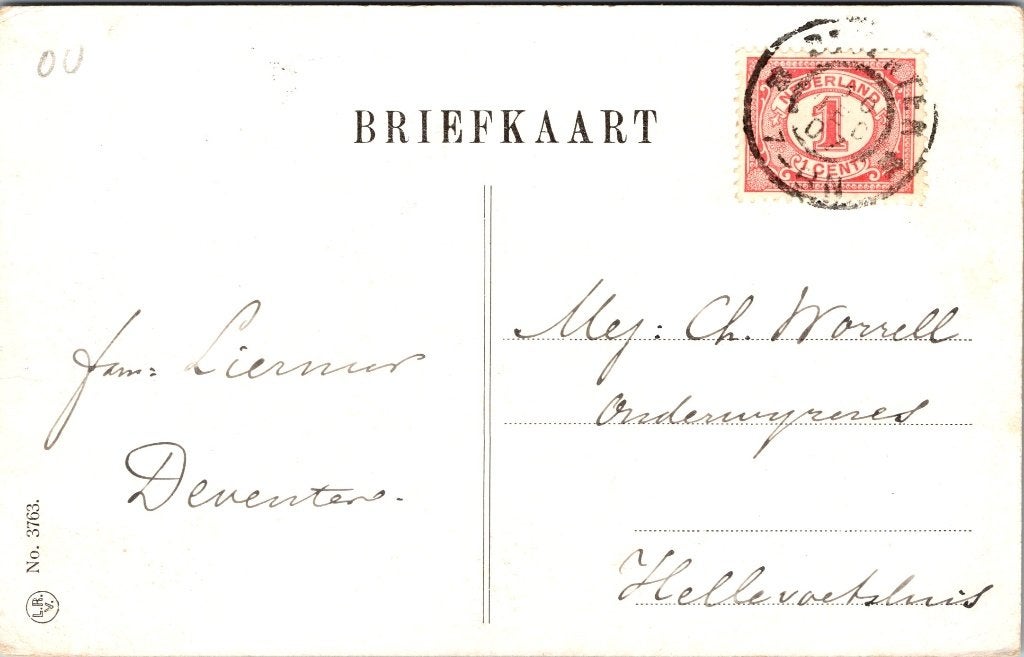 OU
BRIEFKAART
DEVENTER
NEDERLAND
1
1 CENT
DEC
fam: Liernur
Deventer.
Mej: Ch. Worrell
Onderwyzeres
Hellevoetsluis
No. 3763.
L.R.
V.